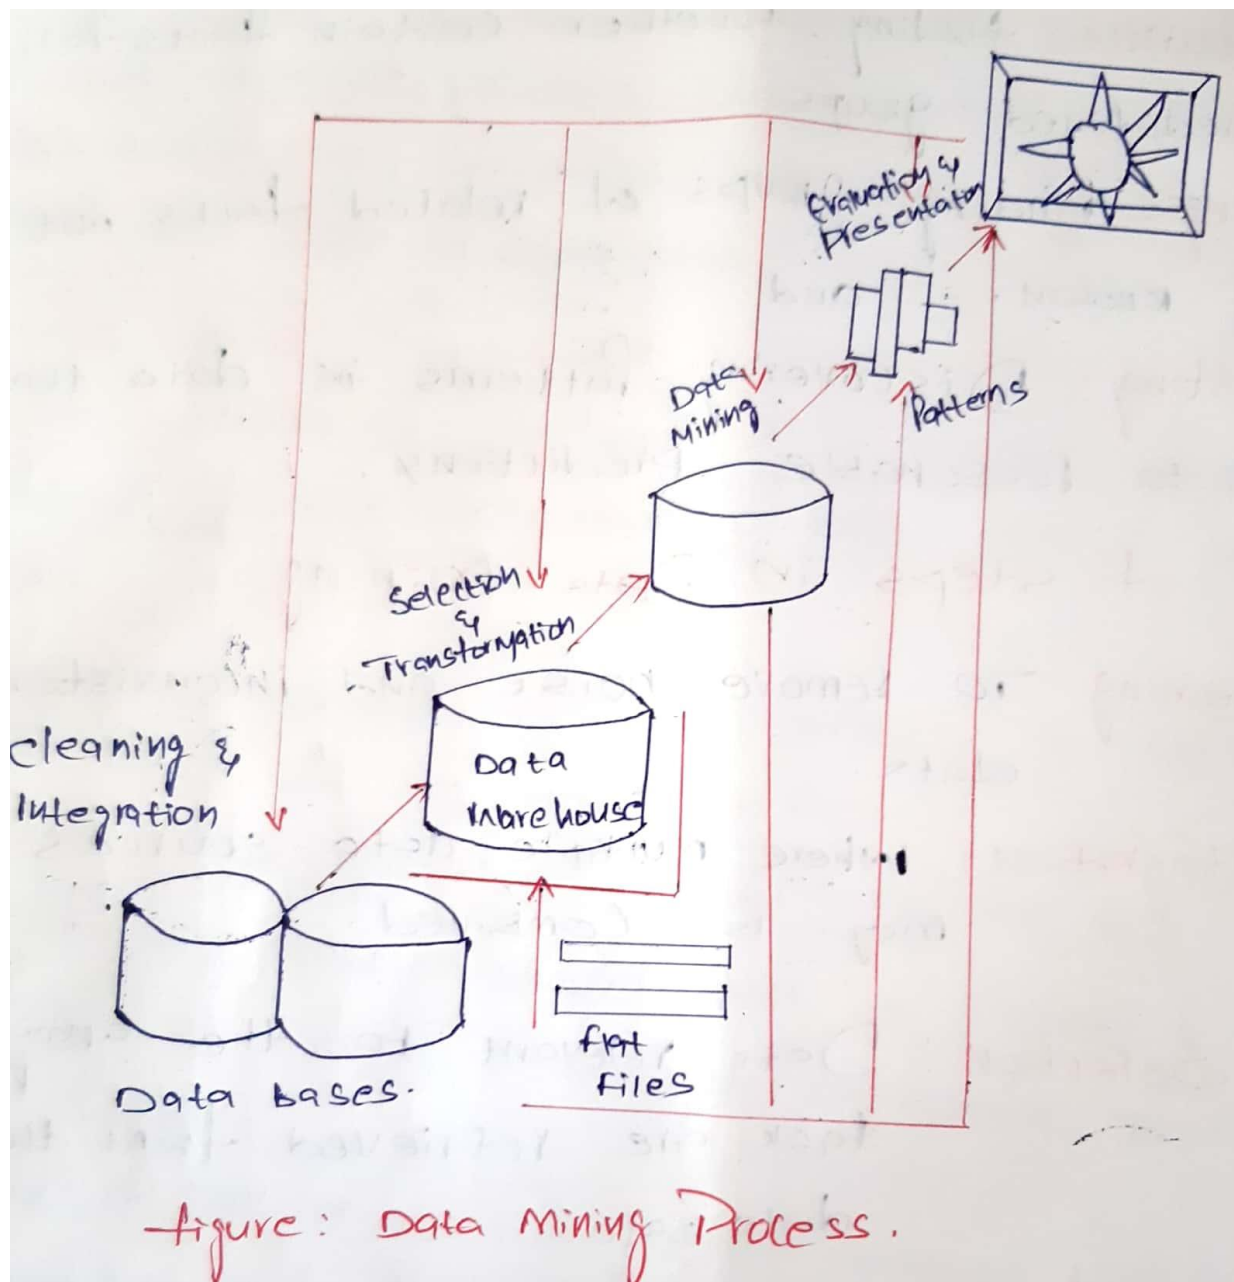 Evaluation &
Presentaiton
Data
Mining
Patterns
Selection
&
Transformation
Cleaning &
Integration
Data
Warehouse
flat
Files
Data bases.
figure: Data Mining Process.